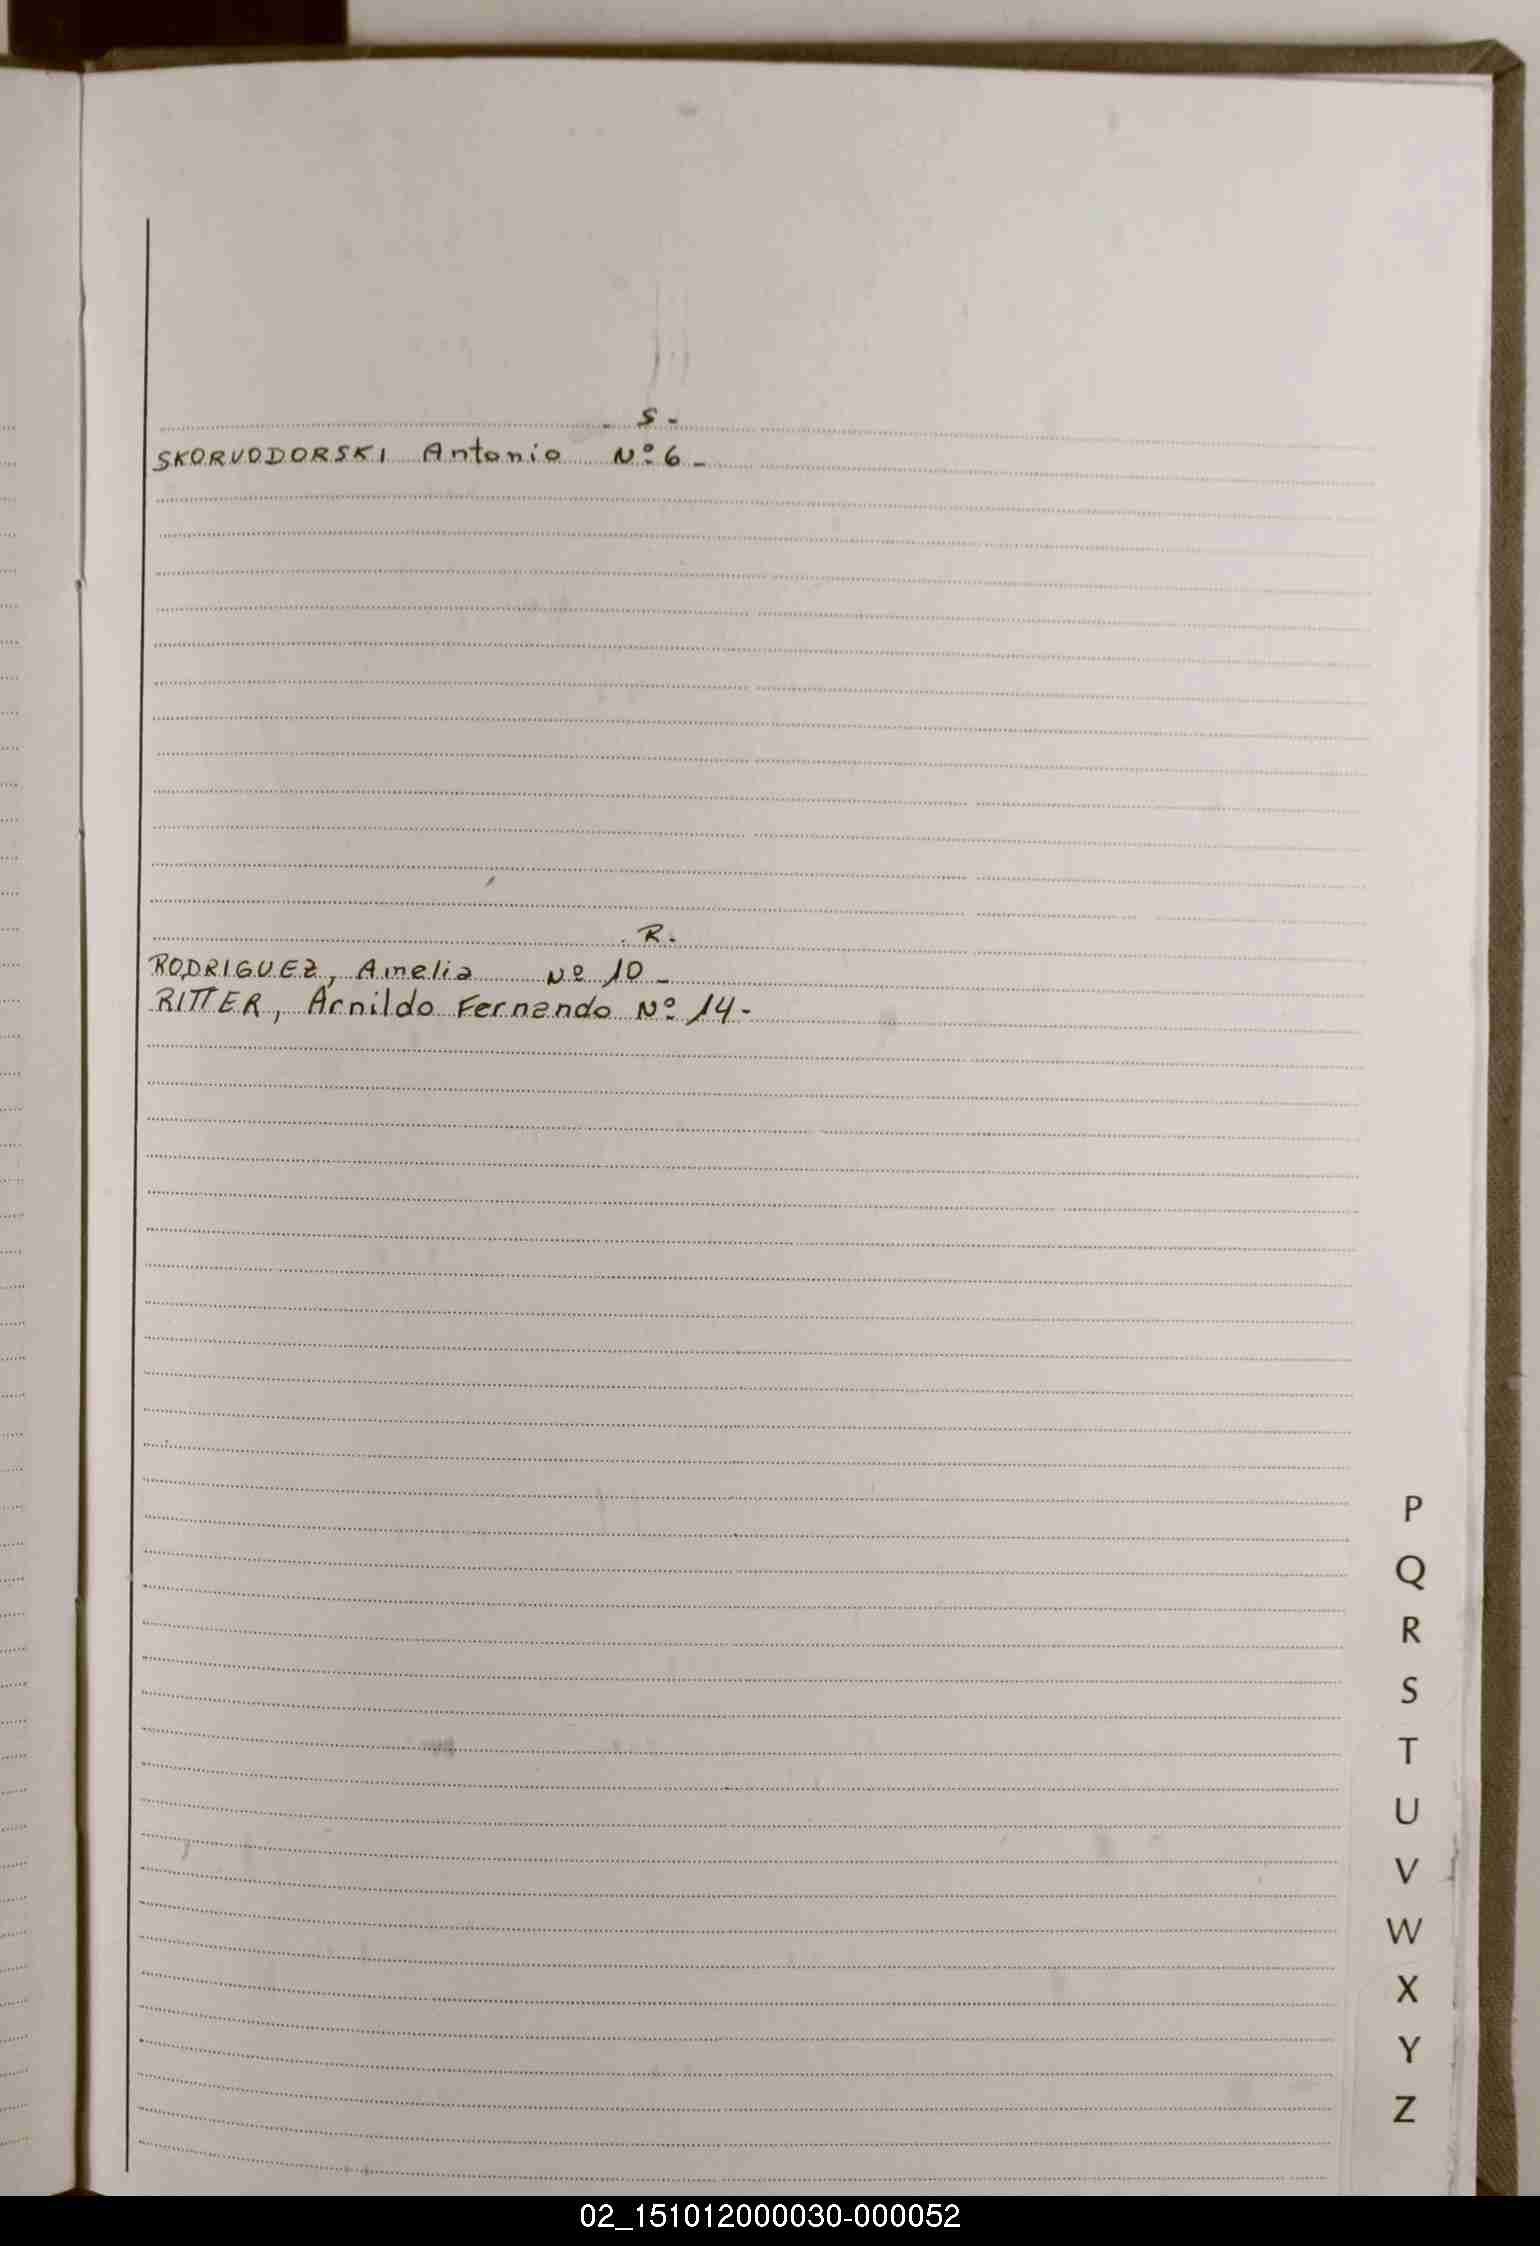 S-
SKORVODORSKI Antonio Nº 6-
.R.
RODRIGUEZ, Amelia Nº 10-
RITTER, Arnildo Fernando Nº 14-
P
Q
R
S
T
U
V
W
X
Y
Z
02_151012000030-000052